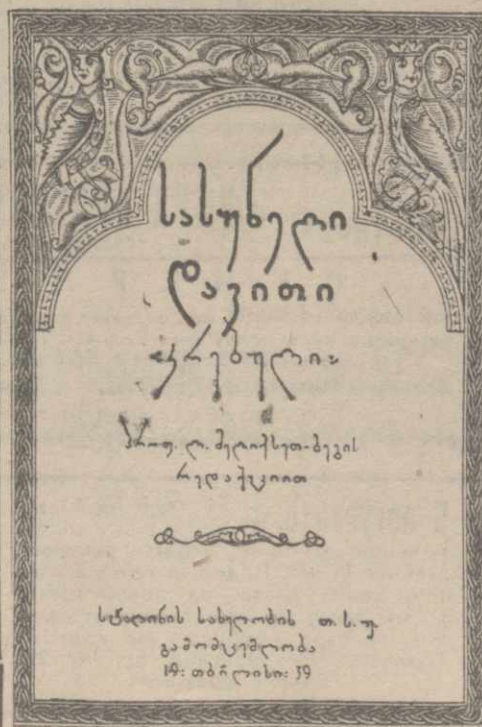 სასუნელი
დავითი
«კრებული»
პროფ. ლ. მელიქსეთ-ბეგის
რედაქციით
სტალინის სახელობის თ. ს. უ.
გამომცემლობა
19: თბილისი: 39